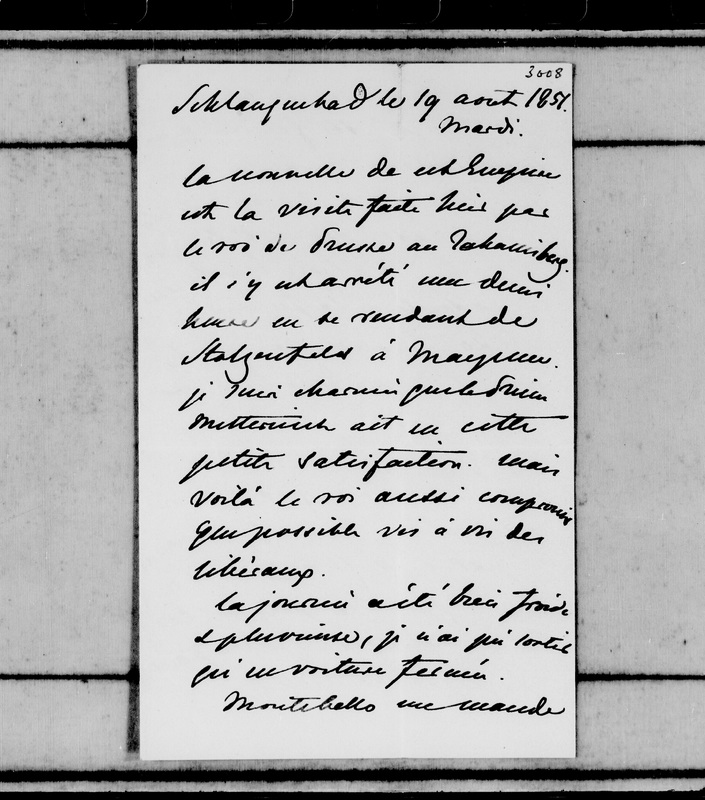 3008
Schlangenbad le 19 aout 1851.
Mardi.
la nouvelle de cet Empire
est la visite faite hier par
le roi de Prusse au Johannisberg.
il s'y est arrêté une demi
heure en se rendant de
Stolzenfels à Mayence.
je suis charmée que le Prince
Metternich ait eu cette
petite satisfaction. mais
voilà le roi aussi compromis
que possible vis à vis des
libéraux.
la journée a été bien froide
& pluvieuse, je n'ai pu sortir
qu'en voiture fermée.
Montebello me mande